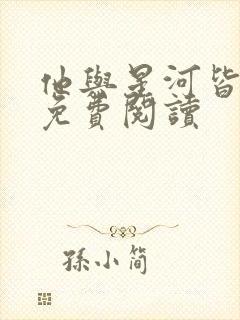 他與星河皆
免費閱讀
孫小简